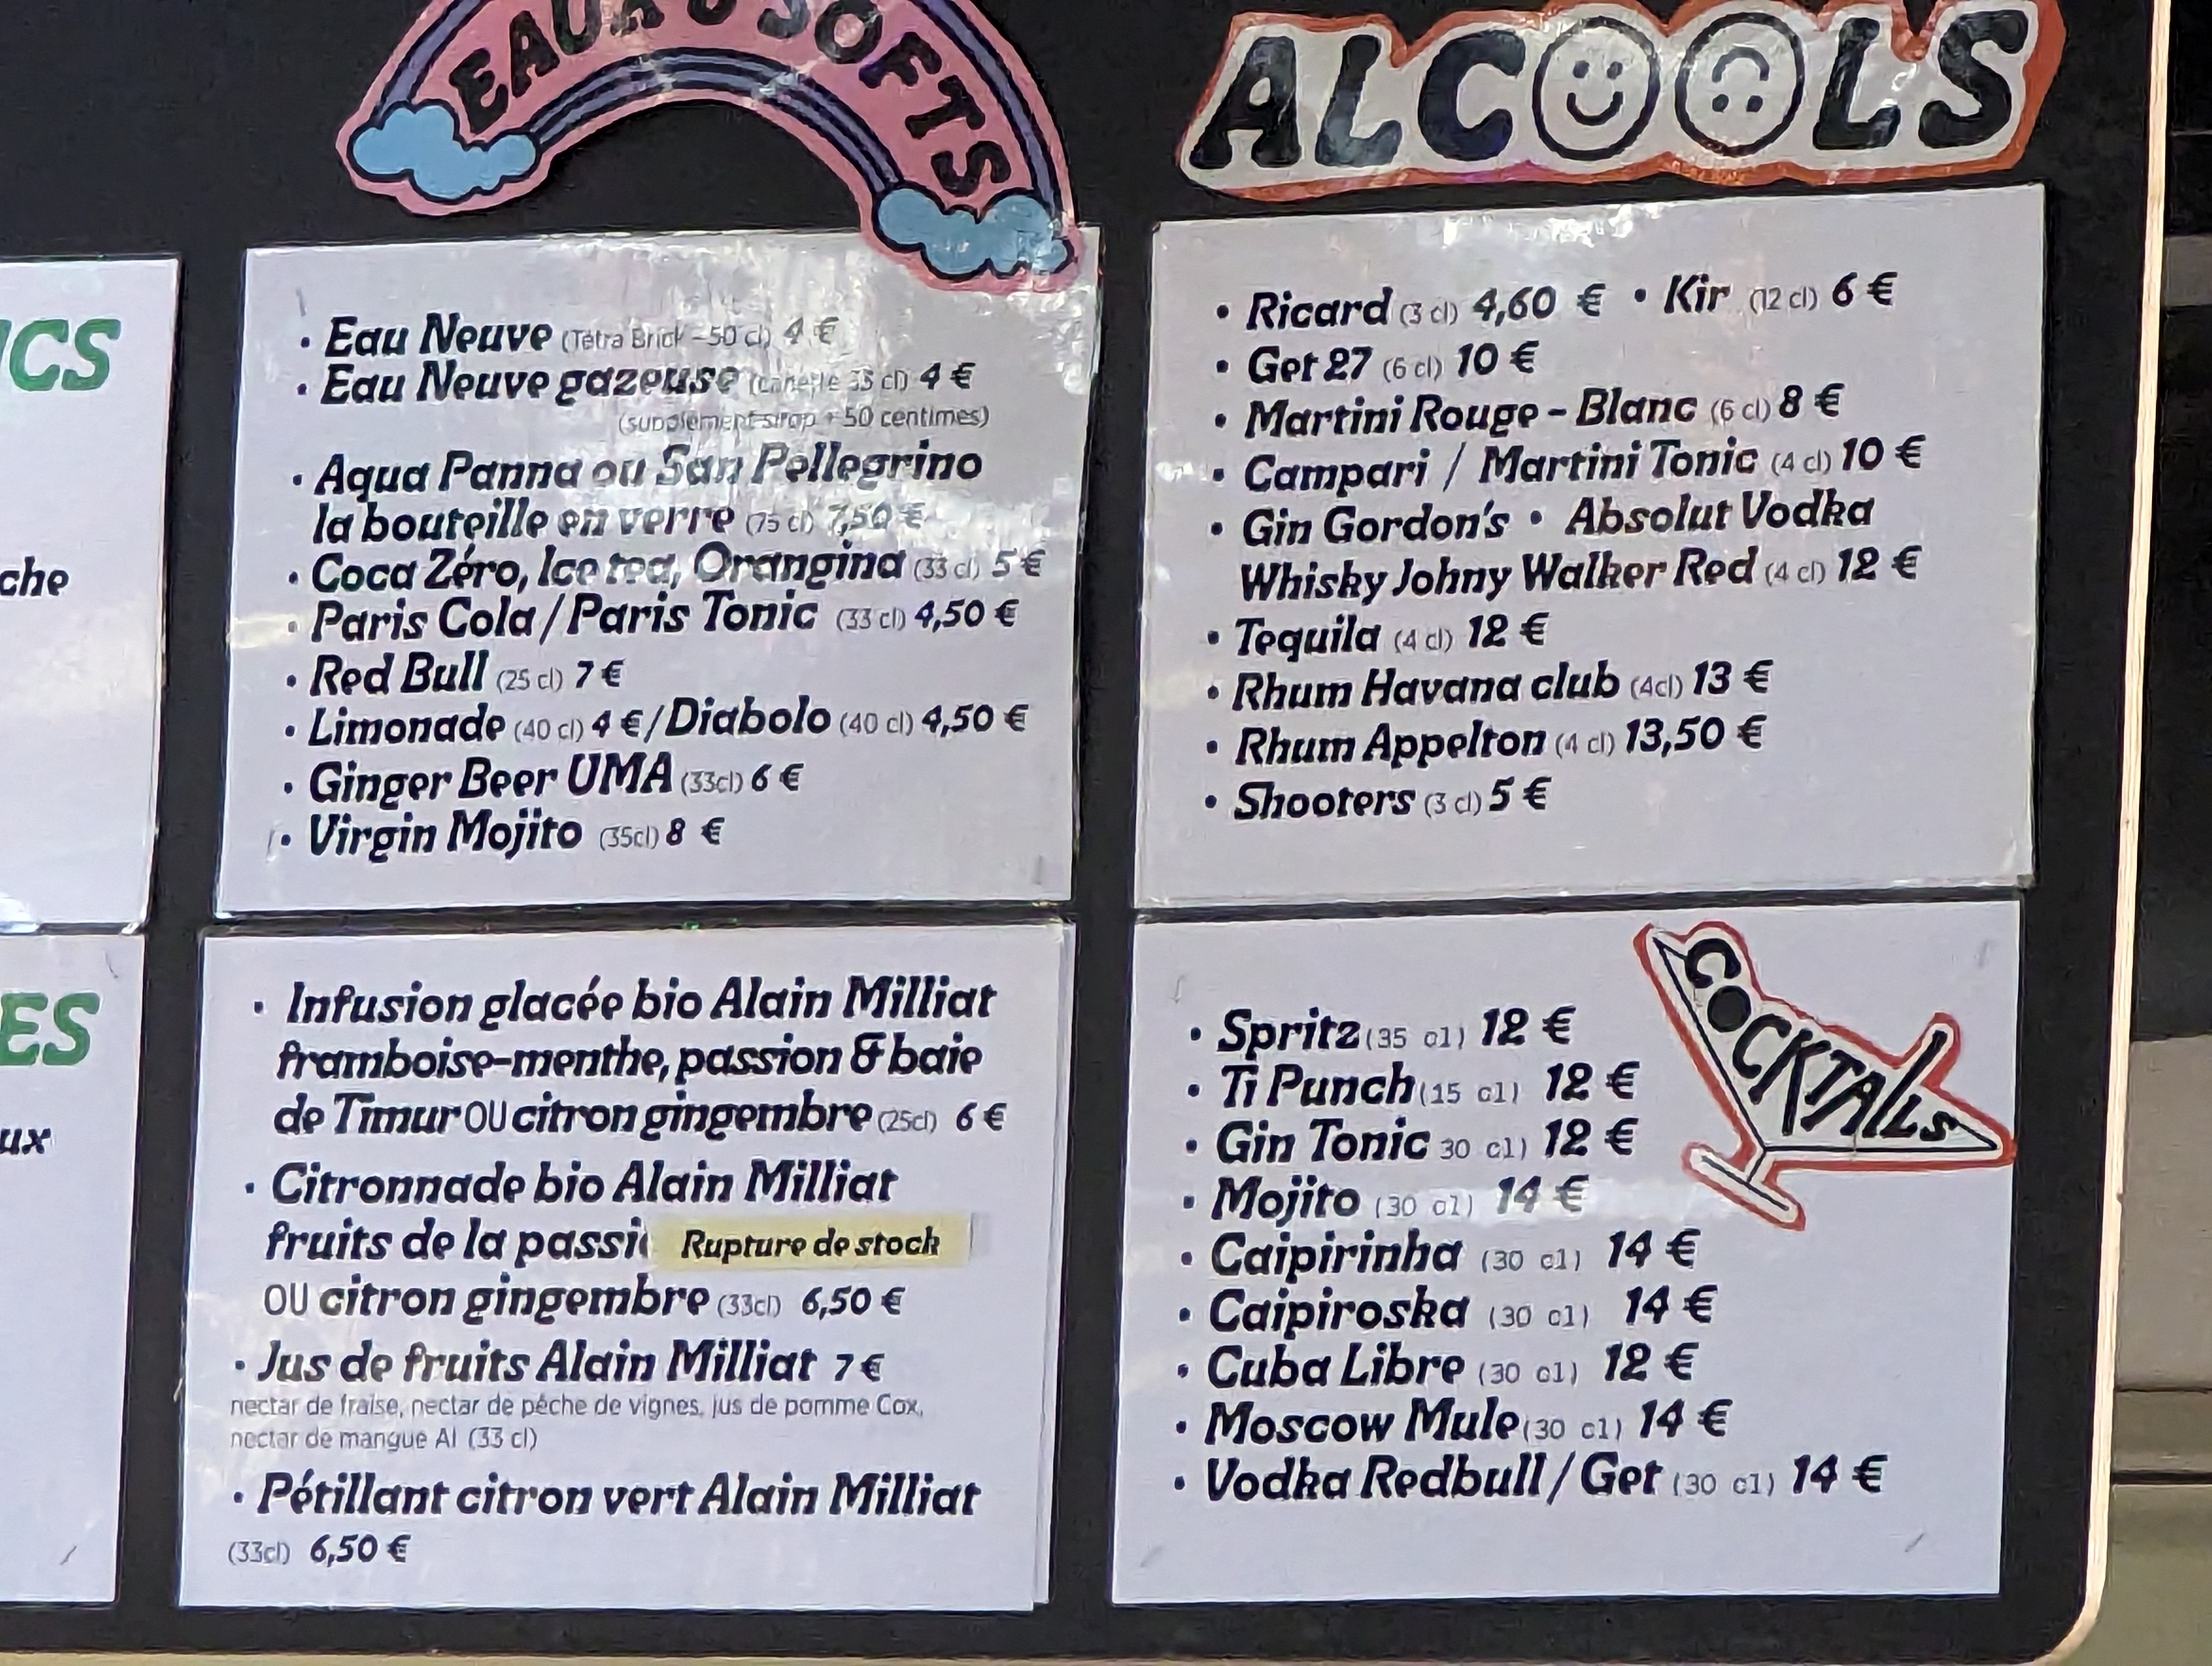 ICS
che
ES
ux
EAUX & SOFTS
• Eau Neuve (Tetra Brick - 50 cl) 4 €
• Eau Neuve gazeuse (canette 33 cl) 4 €
(supplement sirop + 50 centimes)
• Aqua Panna ou San Pellegrino
la bouteille en verre (75 cl) 7,50 €
• Coca Zéro, Ice tea, Orangina (33 cl) 5 €
• Paris Cola / Paris Tonic (33 cl) 4,50 €
• Red Bull (25 cl) 7 €
• Limonade (40 cl) 4 € / Diabolo (40 cl) 4,50 €
• Ginger Beer UMA (33cl) 6 €
• Virgin Mojito (35cl) 8 €
• Infusion glacée bio Alain Milliat
framboise-menthe, passion & baie
de Timur OU citron gingembre (25cl) 6 €
• Citronnade bio Alain Milliat
fruits de la passi Rupture de stock
OU citron gingembre (33cl) 6,50 €
• Jus de fruits Alain Milliat 7 €
nectar de fraise, nectar de pêche de vignes, jus de pomme Cox,
nectar de mangue Al (33 cl)
• Pétillant citron vert Alain Milliat
(33cl) 6,50 €
ALCOOLS
• Ricard (3 cl) 4,60 € • Kir (12 cl) 6 €
• Get 27 (6 cl) 10 €
• Martini Rouge - Blanc (6 cl) 8 €
• Campari / Martini Tonic (4 cl) 10 €
• Gin Gordon's • Absolut Vodka
Whisky Johny Walker Red (4 cl) 12 €
• Tequila (4 cl) 12 €
• Rhum Havana club (4cl) 13 €
• Rhum Appelton (4 cl) 13,50 €
• Shooters (3 cl) 5 €
COCKTAILS
• Spritz (35 cl) 12 €
• Ti Punch (15 cl) 12 €
• Gin Tonic 30 cl) 12 €
• Mojito (30 cl) 14 €
• Caipirinha (30 cl) 14 €
• Caipiroska (30 cl) 14 €
• Cuba Libre (30 cl) 12 €
• Moscow Mule (30 cl) 14 €
• Vodka Redbull / Get (30 cl) 14 €